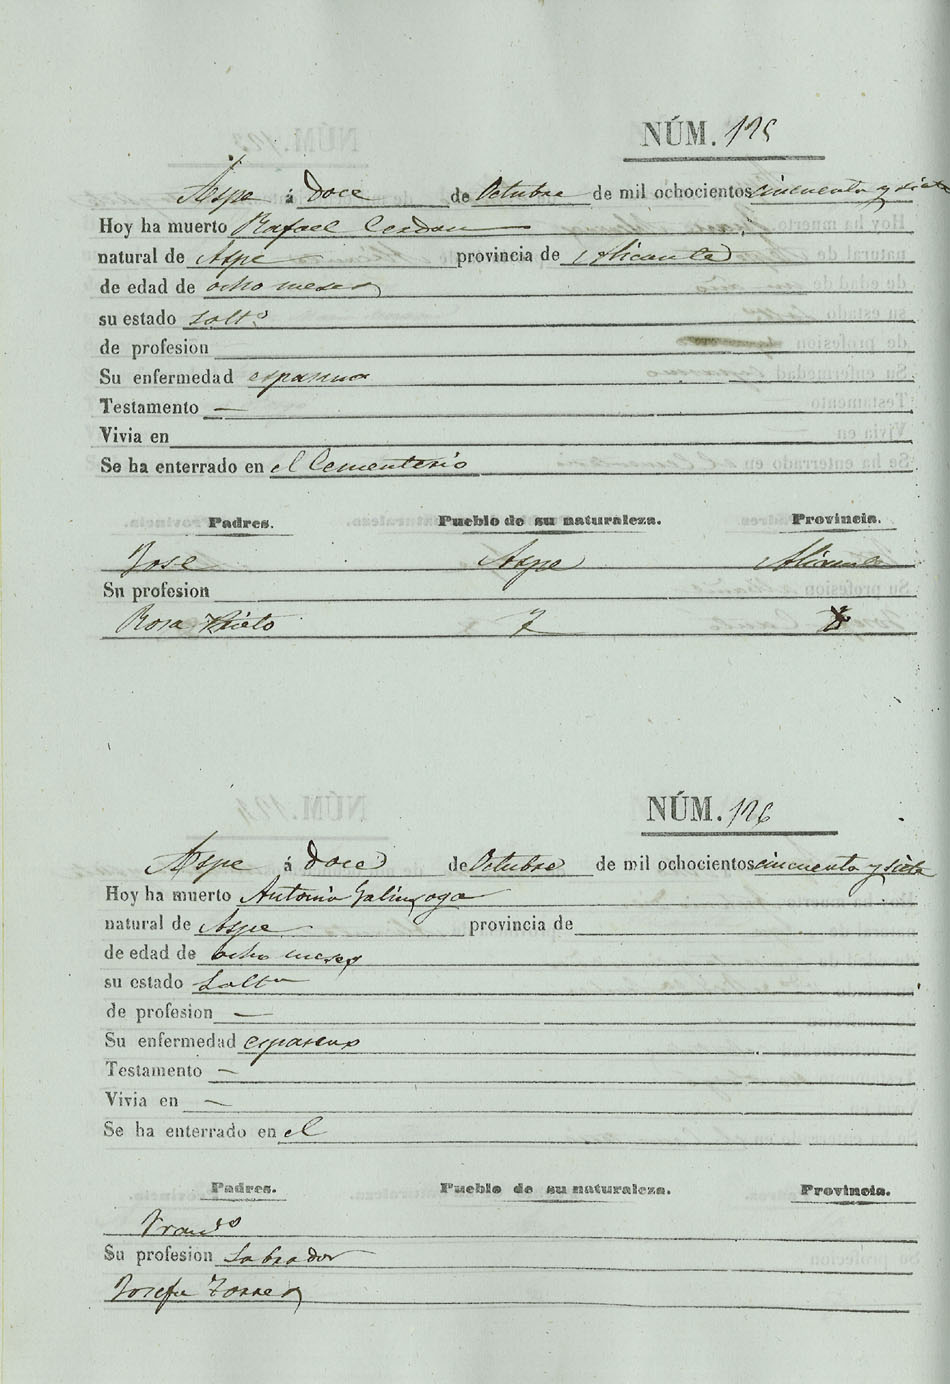 NÚM. 125
Aspe á doce de Octubre de mil ochocientos cincuenta y siete
Hoy ha muerto Rafael Cerdan
natural de Aspe provincia de Alicante
de edad de ocho meses
su estado solt.º
de profesion
Su enfermedad espasmo
Testamento —
Vivia en
Se ha enterrado en el Cementerio
Padres. Pueblo de su naturaleza. Provincia.
Jose Aspe Alicante
Su profesion
Rosa Prieto
NÚM. 126
Aspe á doce de Octubre de mil ochocientos cincuenta y siete
Hoy ha muerto Antonio Galinsoga
natural de Aspe provincia de
de edad de ocho meses
su estado Solto
de profesion —
Su enfermedad espasmo
Testamento —
Vivia en —
Se ha enterrado en el
Padres. Pueblo de su naturaleza. Provincia.
Franco
Su profesion Labrador
Josefa Torres